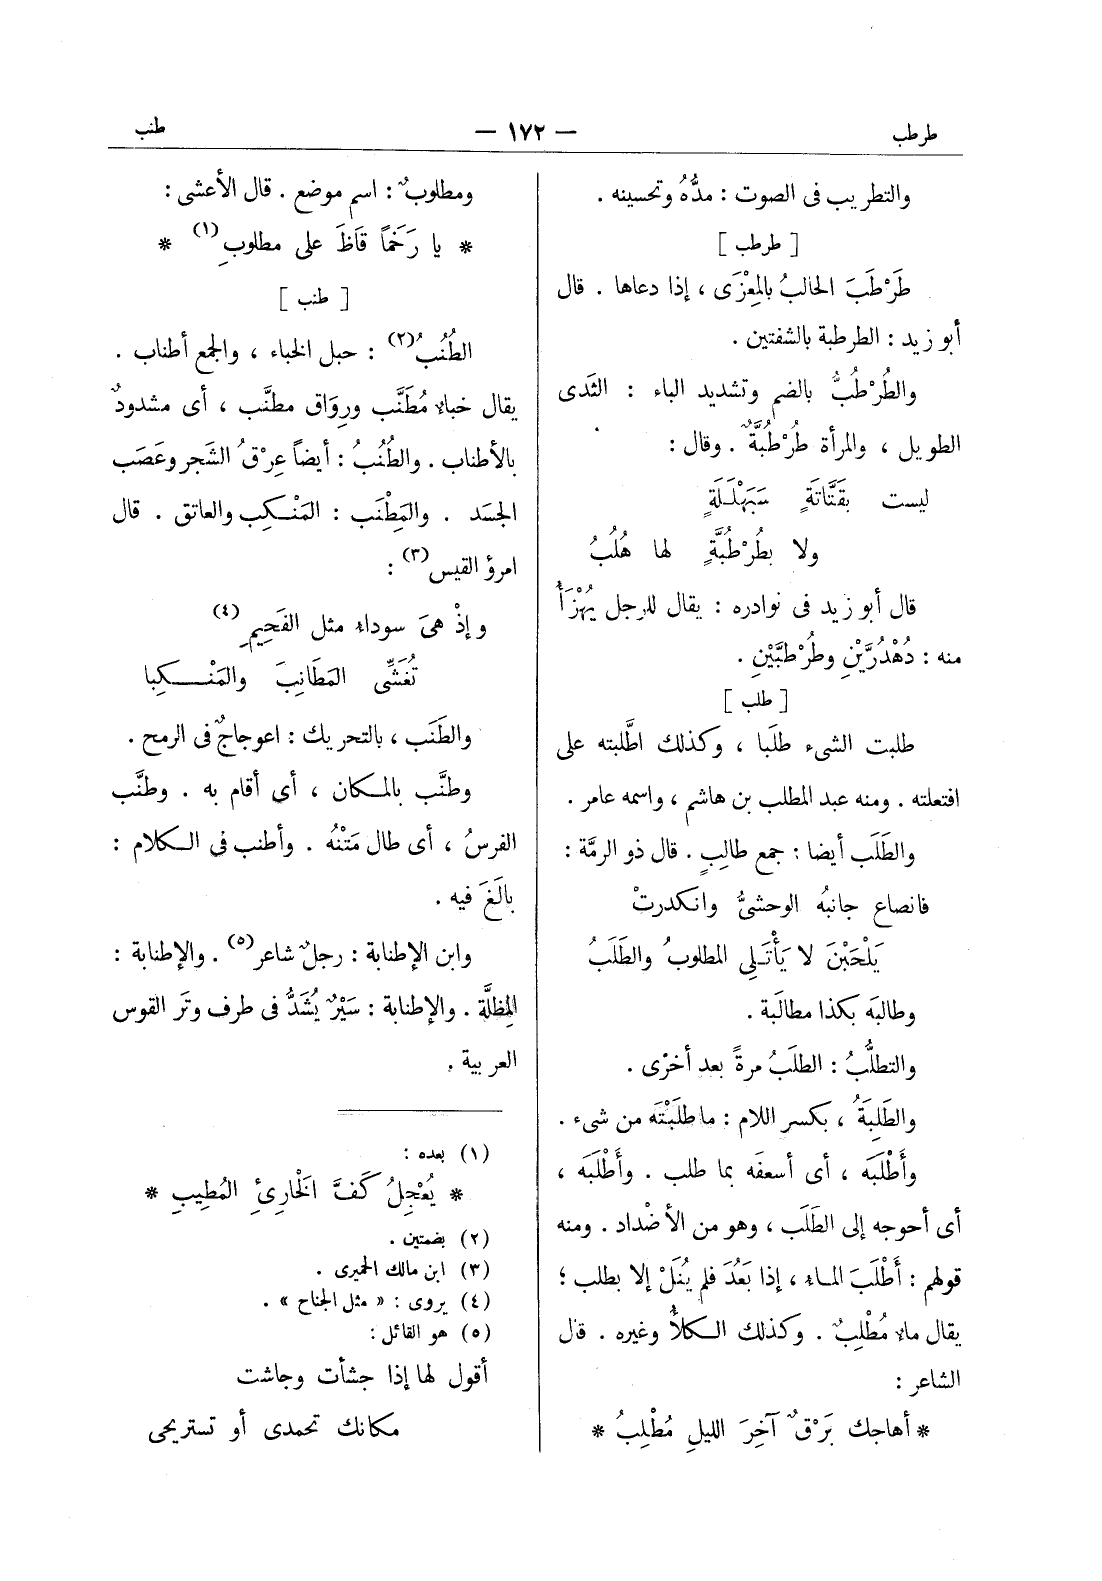 طرطب
— ١٧٢ —
طنب
والتطريب فى الصوت : مدُّهُ وتحسينه .
[ طرطب ]
طَرْطَبَ الحالبُ بالمِعْزَى ، إذا دعاها . قال
أبو زيد : الطرطبة بالشفتين .
والطُرْطُبُّ بالضم وتشديد الباء : الثَدى
الطويل ، والمرأة طُرْطُبَّةٌ . وقال :
ليست بقَتَّاتَةٍ سَبَهْلَلَةٍ
ولا بطُرْطُبَّةٍ لها هُلْبُ
قال أبو زيد فى نوادره : يقال للرجل يُهْزَأُ
منه : دُهْدُرَّيْنِ وطُرْطبَّيْنِ .
[ طلب ]
طلبت الشىء طلَبا ، وكذلك اطَّلبته على
افتعلته . ومنه عبد المطلب بن هاشم ، واسمه عامر .
والطَلَب أيضا : جمع طالبٍ . قال ذو الرمَّة :
فانصاع جانبُه الوحشىُّ وانكدرتْ
يَلْحَبْنَ لا يَأْتَلِى المطلوبُ والطَلَبُ
وطالبَه بكذا مطالَبة .
والتطلُّبُ : الطلَبُ مرةً بعد أخرْى .
والطَلِبَةُ ، بكسر اللام : ما طلَبْتَه من شىء .
وأَطْلَبَه ، أى أسعفَه بما طلب . وأَطْلَبَه ،
أى أحوجه إلى الطَلَب ، وهو من الأضْداد . ومنه
قولهم : أَطْلَبَ الماء ، إذا بَعُدَ فلم يُنَلْ إلا بطلب ؛
يقال ماء مُطْلِبٌ . وكذلك الكلأُ وغيره . قال
الشاعر :
* أهاجك بَرْقٌ آخِرَ الليلِ مُطْلِبُ *
ومطلوبٌ : اسم موضع . قال الأعشى :
* يا رَخَمًا قَاظَ على مطلوبِ (١) *
[ طنب ]
الطُنُبُ (٢) : حبل الخباء ، والجمع أطناب .
يقال خباء مُطَنَّب ورِوَاق مطنَّب ، أى مشدودٌ
بالأطناب . والطُنُبُ : أيضاً عِرْقُ الشَجر وعَصَب
الجسَد . والمِطْنَب : المَنْكِب والعاتق . قال
امرؤ القيس (٣) :
وإذْ هىَ سوداء مثل الفَحِيمِ (٤)
تُغَشِّى المَطَانِبَ والمَنْكِبا
والطَنَب ، بالتحريك : اعوجاجٌ فى الرمح .
وطنَّب بالمكان ، أى أقام به . وطنَّب
الفرسُ ، أى طال مَتْنُه . وأطنب فى الكلام :
بالَغَ فيه .
وابن الإطنابة : رجلٌ شاعر (٥) . والإطنابة :
المِظلَّة . والإطنابة : سَيْرٌ يُشَدُّ فى طرف وتَر القوس
العربية .
(١) بعده :
* يُعْجِلُ كَفَّ الخارِئِ المُطِيبِ *
(٢) بضمتين .
(٣) ابن مالك الحميرى .
(٤) يروى : « مثل الجناح » .
(٥) هو القائل :
أقول لها إذا جشأت وجاشت
مكانك تحمدى أو تستريحى